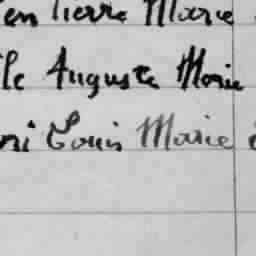 en Pierre Marie
le Auguste Marie
ri Louis Marie